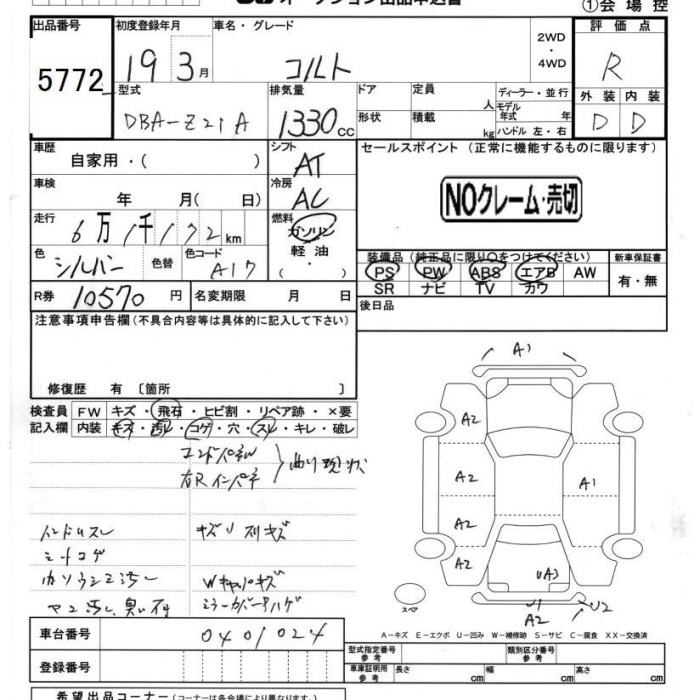 オークション出品申込書 ①会場控
出品番号 初度登録年月 車名・グレード 評価点
5772 19年3月 コルト 2WD・4WD R
型式 排気量 ドア 定員 ディーラー・並行 外装 内装
DBA-Z21A 1330cc 形状 積載 人 kg モデル年式 年 ハンドル 左・右 D D
車歴 自家用・( ) シフト AT セールスポイント (正常に機能するものに限ります)
車検 年 月( 日) 冷房 AC NOクレーム・売切
走行 6万1千172km 燃料 ガソリン 軽油・( )
色 シルバー 色替 色コード A17 装備品 (純正品に限り○をつけてください) 新車保証書
PS PW ABS エアB AW 有・無
SR ナビ TV カワ
R券 10570円 名変期限 月 日 後日品
注意事項申告欄 (不具合内容等は具体的に記入して下さい)
修復歴 有 〔箇所 〕
検査員 FW キズ・飛石・ヒビ割・リペア跡・×要
記入欄 内装 キズ・汚レ・コゲ・穴・スレ・キレ・破レ
エンドパネル
右Rインパネ 曲り現状
ハンドルスレ キズU 刻キズ
シートコゲ
Wキャパキズ
ミラーカバーハゲ
A1
A2
A2 A1
A2
A2 UA3
スペア U1 U2
A2
A-キズ E-エクボ U-凹み W-補修跡 S-サビ C-腐食 XX-交換済
車台番号 0401024 型式指定番号 参考 類別区分番号 参考
登録番号 車庫証明用 参考 長さ cm 幅 cm 高さ cm
希望出品コーナー (コーナーは各会場により異なります)